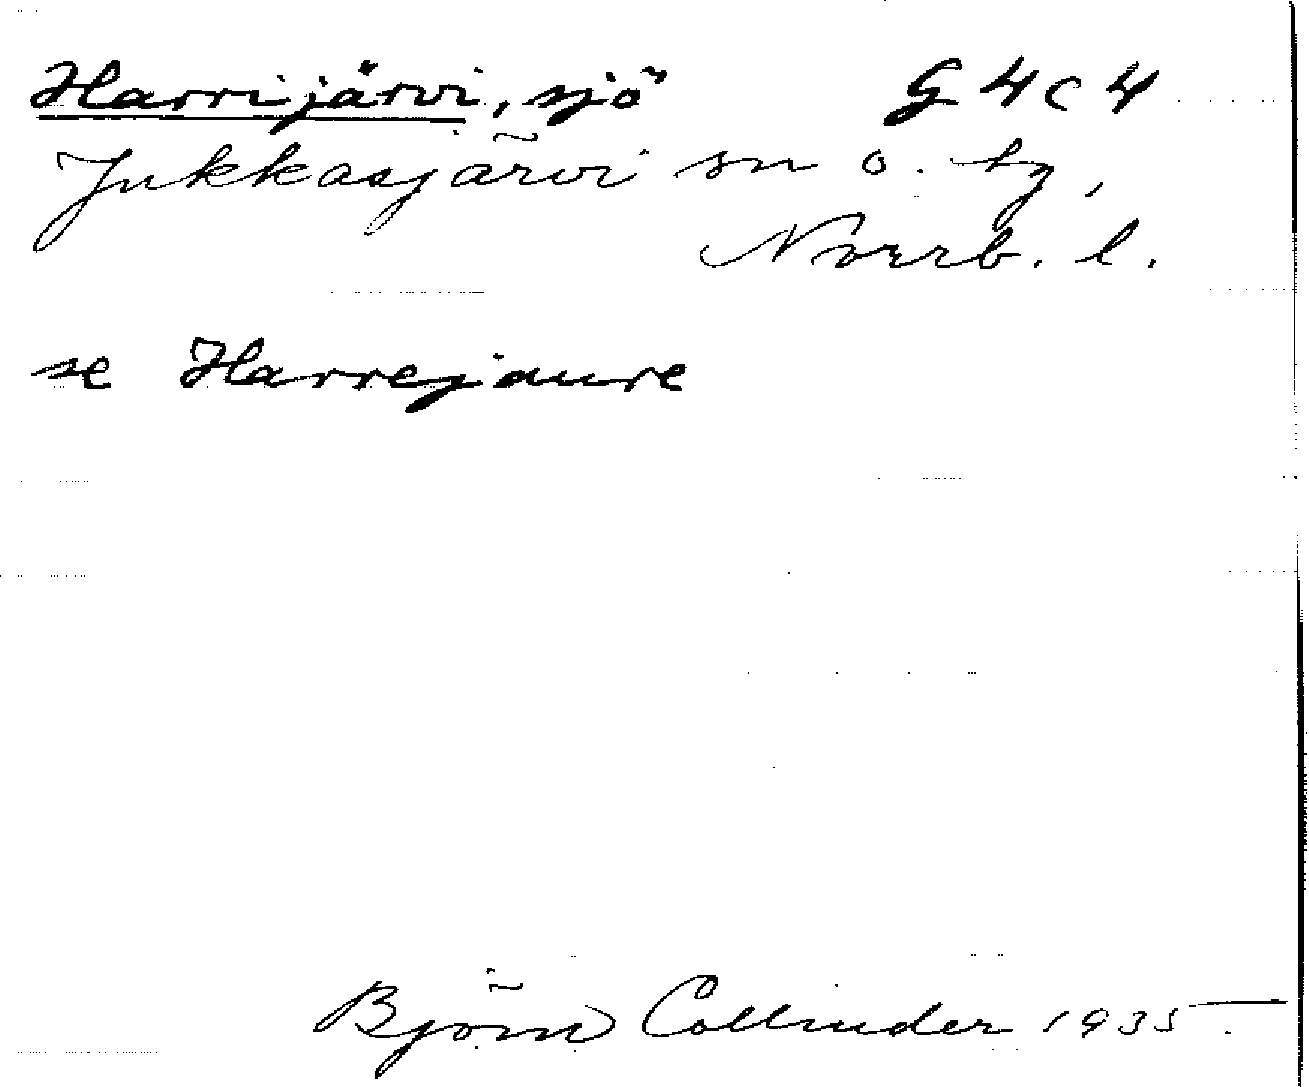 Harrijärvi, sjö G 4 c 4
Jukkasjärvi sn o. tg,
Norrb. l.
se Harrejaure
Björn Collinder 1935.